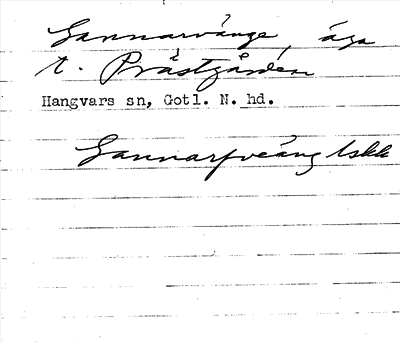 Gannarvänge, äga
t. Prästgården
Hangvars sn, Gotl. N. hd.
Gannarfveäng Uskk